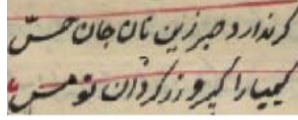 گر ندارد صبر زین نان جان حس
کیمیا را گیر و زر گردان تو مس